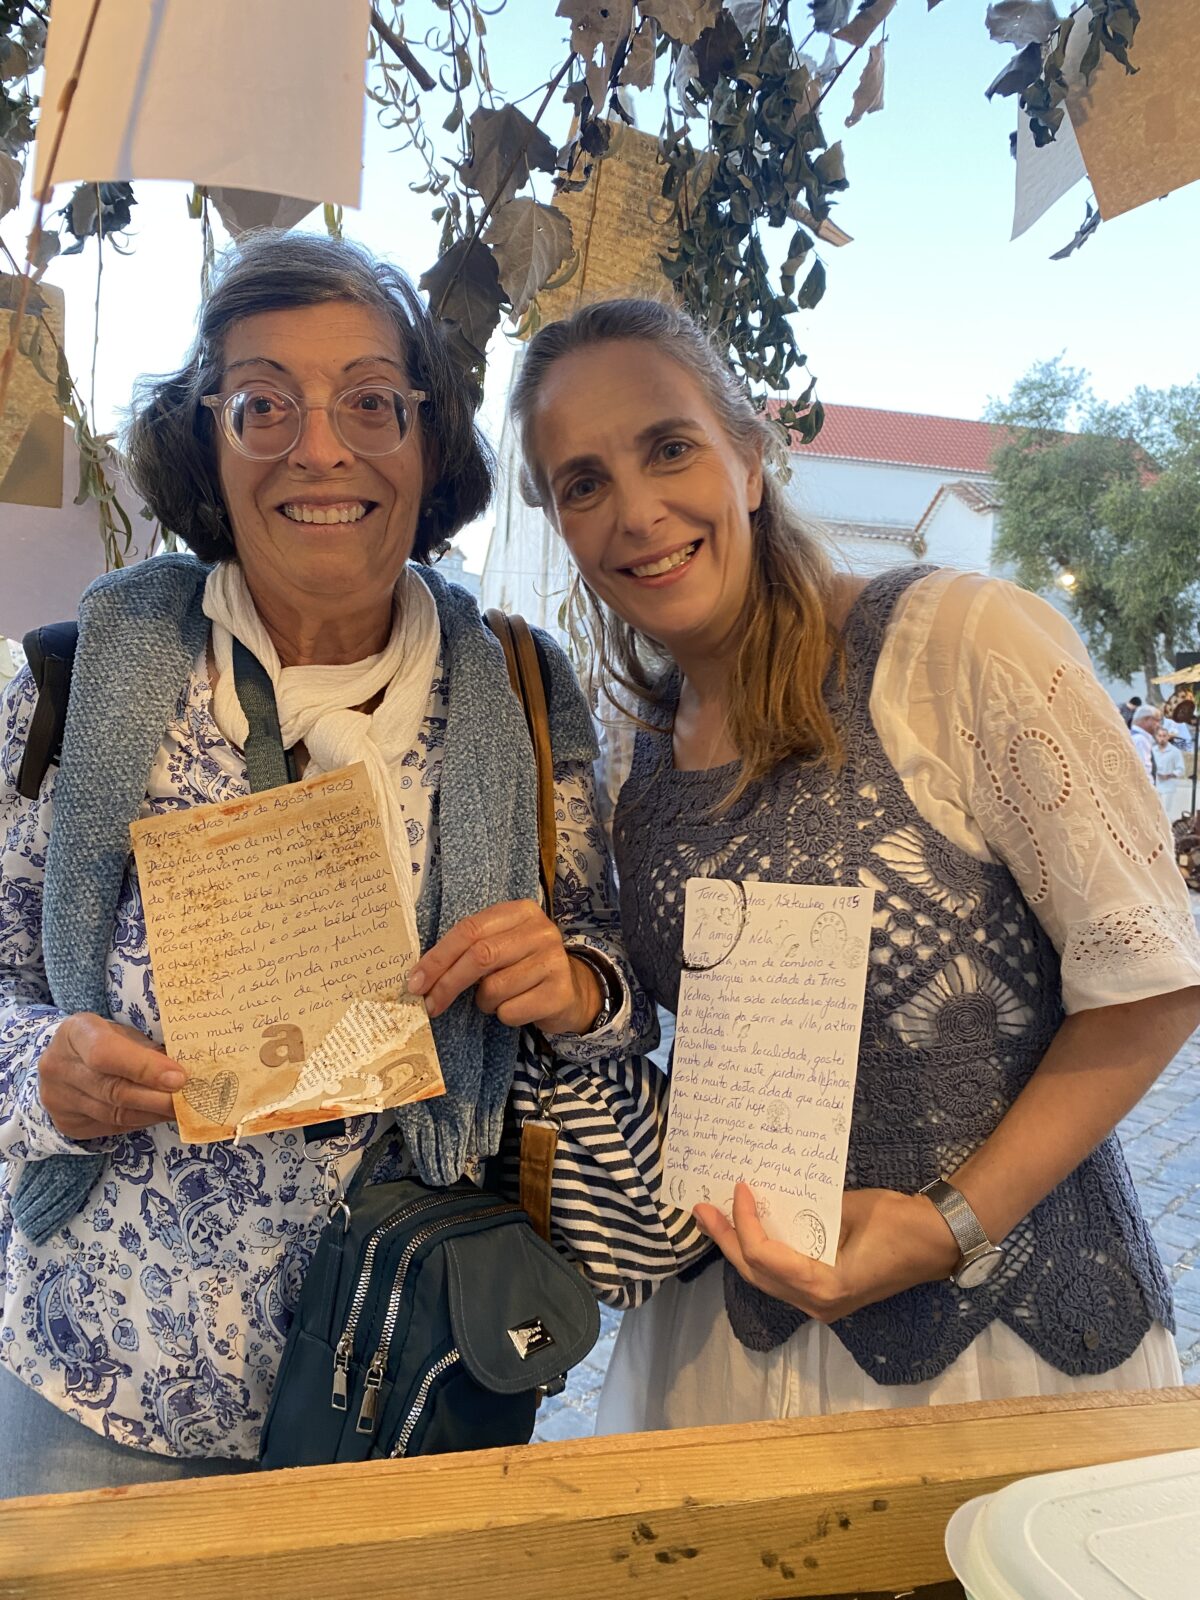 Torres Vedras, 28 de Agosto 1809
Decorria o ano de mil oitocentos e
nove, estavamos no mês de Dezemb
do respetivo ano, a minha mãe
iria ter o seu bébé, mas mais uma
vez esse bébé deu sinais de querer
nascer mais cedo, e estava quase
a chegar o Natal, e o seu bébé chegou
no dia 22 de Dezembro, pertinho
do Natal, a sua linda menina
nasceria cheia de força e coragem
com muito cabelo e iria-se chamar
Ana Maria.
a
Torres Vedras, Setembro 1985
A amiga Nela
Neste dia, vim de comboio e
desembarquei na cidade de Torres
Vedras, tinha sido colocada no jardim
de Infância da serra da vila, a 2 km
da cidade.
Trabalhei nesta localidade, gostei
muito de estar neste jardim de Infância,
Gosto muito desta cidade que acabei
por residir até hoje
Aqui fiz amigos e resido numa
zona muito previlegiada da cidade
na zona verde do parque a várzea.
Sinto esta cidade como minha.